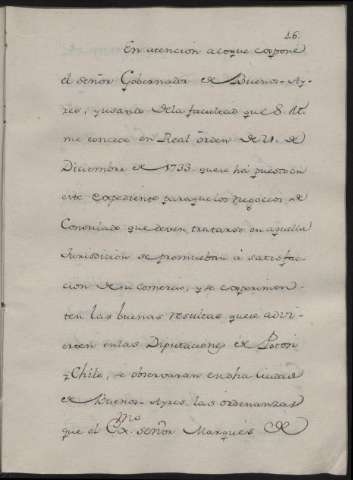 26.
En atencion a loque expone
el señor Gobernador de Buenos-Ay-
res, y usando dela facultad que S. M.
me concede en Real orden de 11. de
Diciembre de 1793 que se ha puesto en
este expediente paraque los negocios de
Consulado que deven tratarse en aquella
Jurisdicion se promuevan à satisfac
cion de su comercio, y se experimen-
ten las buenas resultas que se advi-
erten enlas Diputaciones de Potosi
y Chile, se observaran en dha ciudad
de Buenos Ayres las ordenanzas
que el Exmo. señor Marques de